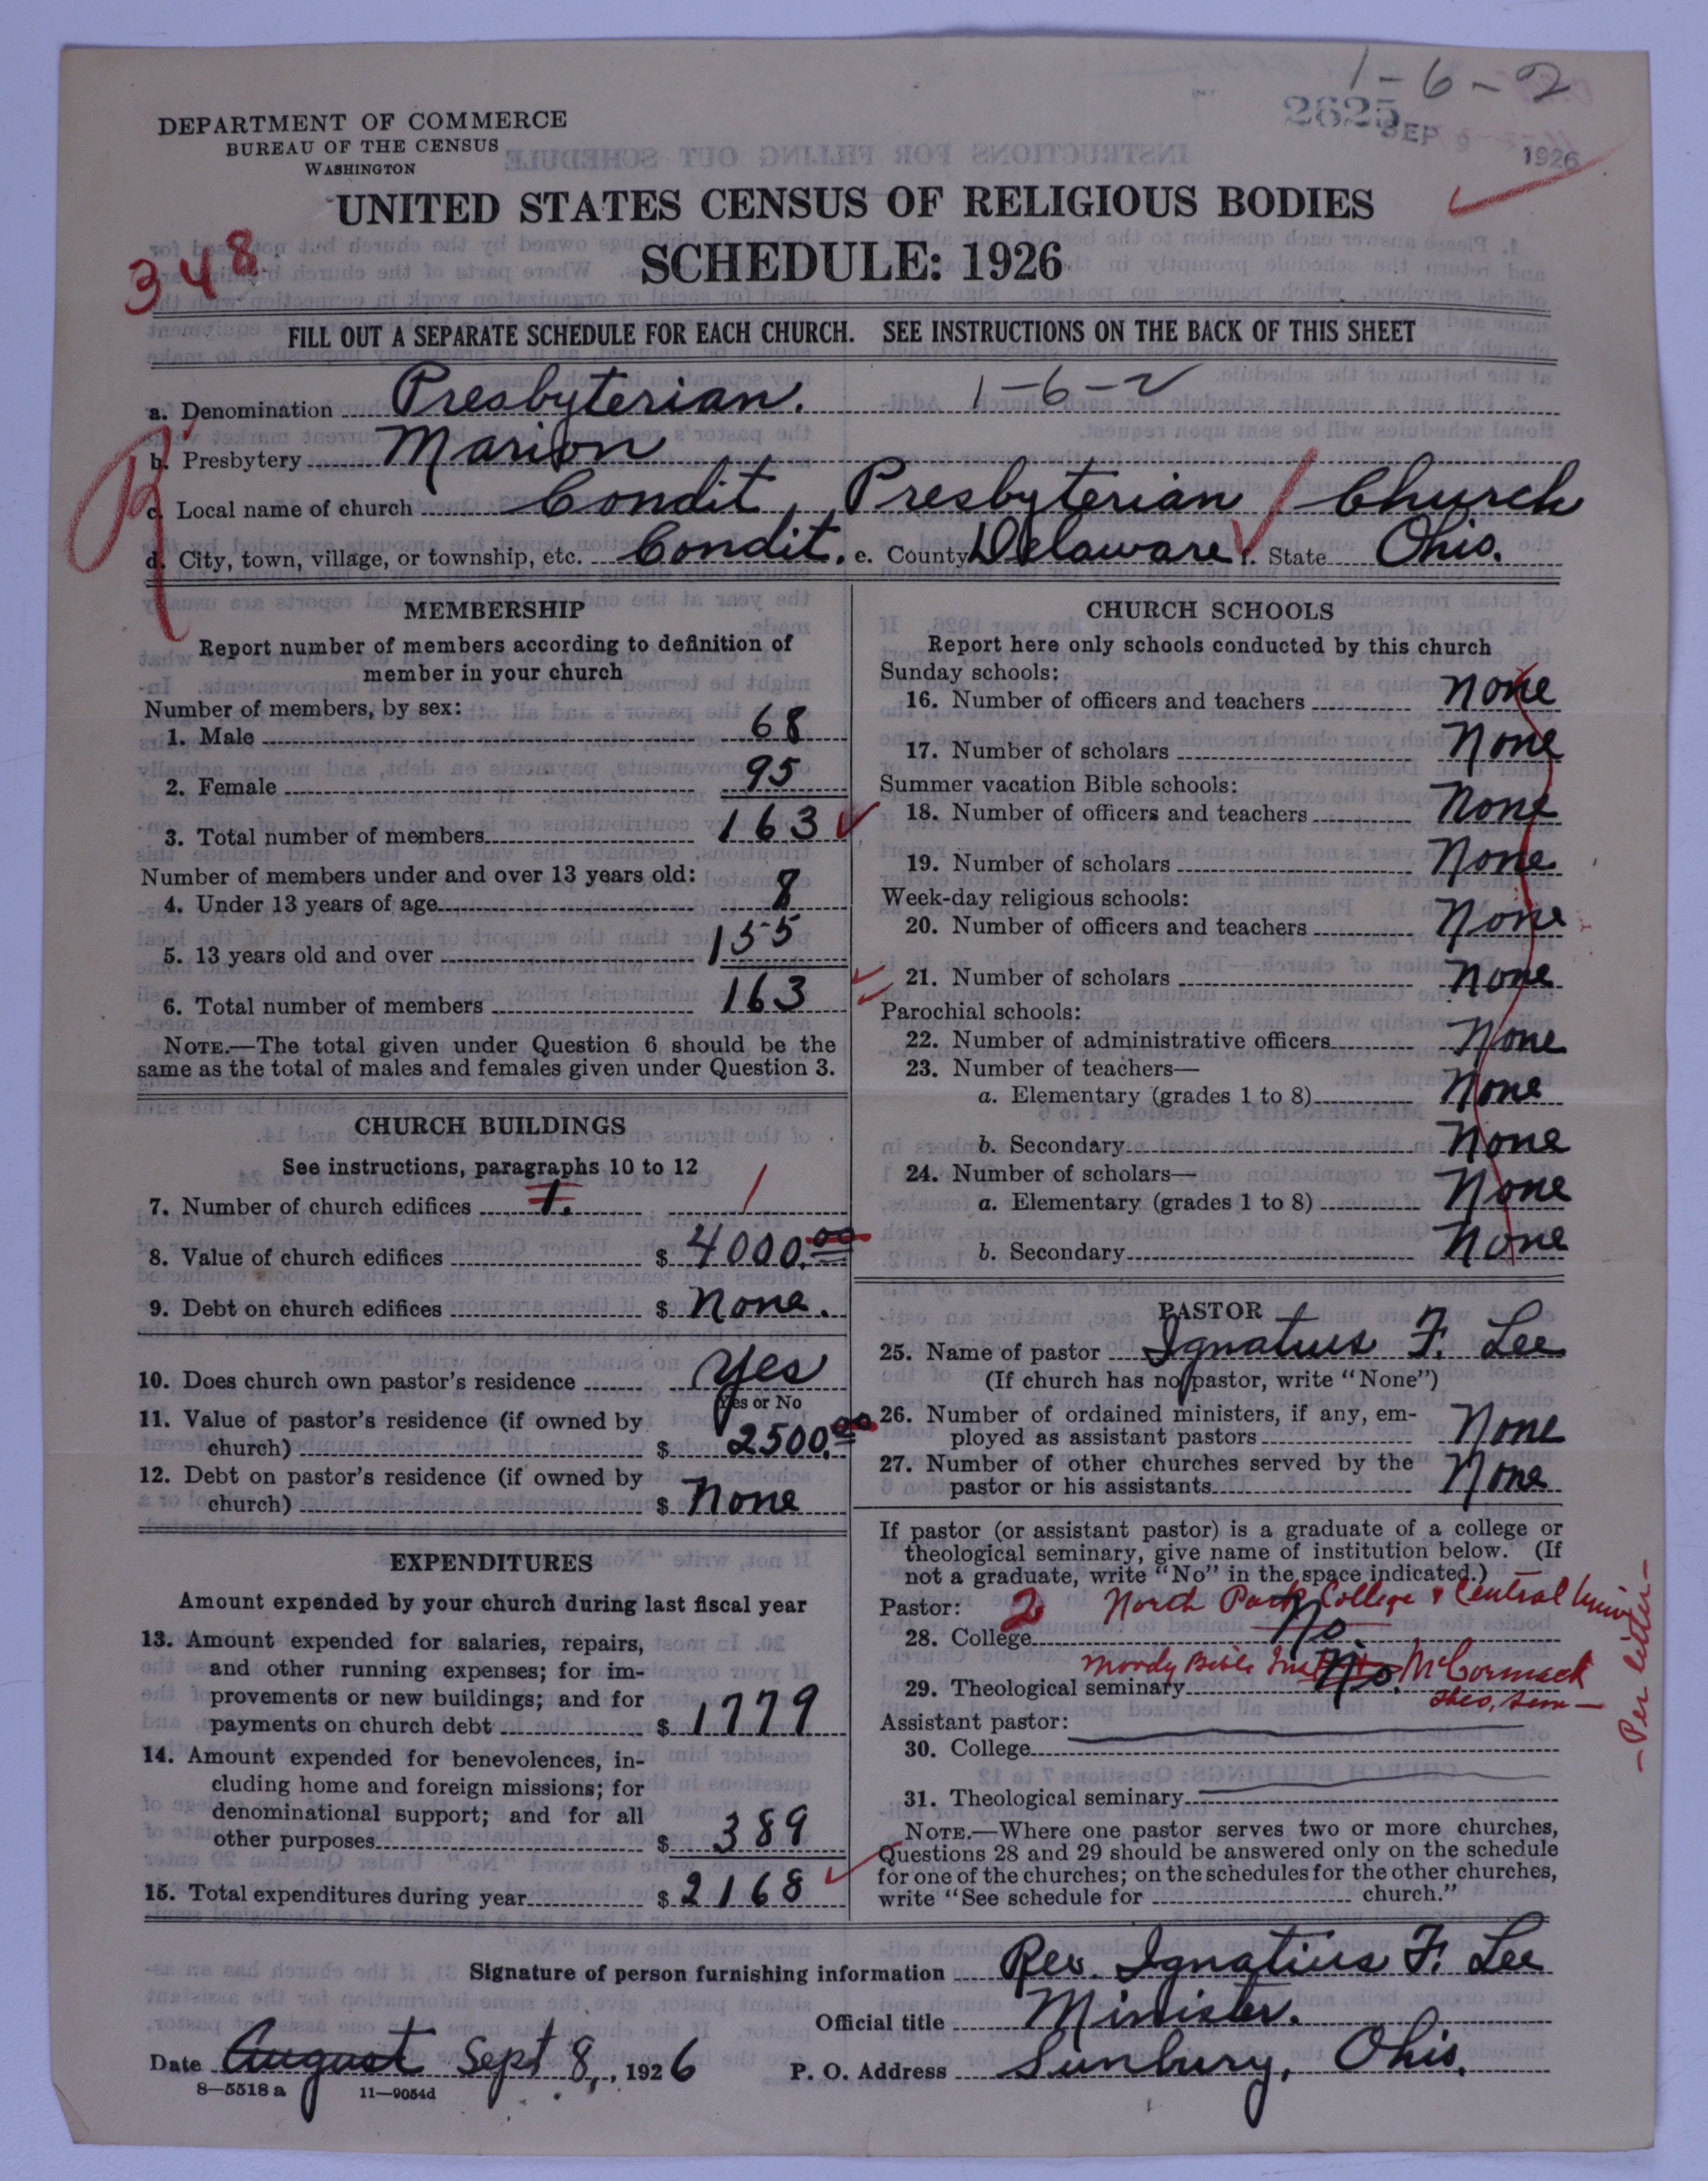 1-6-2
2625
SEP 9 1926
DEPARTMENT OF COMMERCE
BUREAU OF THE CENSUS
WASHINGTON
UNITED STATES CENSUS OF RELIGIOUS BODIES
SCHEDULE: 1926
348
FILL OUT A SEPARATE SCHEDULE FOR EACH CHURCH. SEE INSTRUCTIONS ON THE BACK OF THIS SHEET
a. Denomination Presbyterian. 1-6-2
b. Presbytery Marion
c. Local name of church Condit Presbyterian Church
d. City, town, village, or township, etc. Condit. e. County Delaware f. State Ohio.
MEMBERSHIP
Report number of members according to definition of
member in your church
Number of members, by sex:
1. Male 68
2. Female 95
3. Total number of members 163
Number of members under and over 13 years old:
4. Under 13 years of age 8
5. 13 years old and over 155
6. Total number of members 163
NOTE.—The total given under Question 6 should be the
same as the total of males and females given under Question 3.
CHURCH BUILDINGS
See instructions, paragraphs 10 to 12
7. Number of church edifices 1. 1
8. Value of church edifices $ 4000.00
9. Debt on church edifices $ None.
10. Does church own pastor's residence Yes
Yes or No
11. Value of pastor's residence (if owned by
church) $ 2500.00
12. Debt on pastor's residence (if owned by
church) $ None
EXPENDITURES
Amount expended by your church during last fiscal year
13. Amount expended for salaries, repairs,
and other running expenses; for im-
provements or new buildings; and for
payments on church debt $ 1779
14. Amount expended for benevolences, in-
cluding home and foreign missions; for
denominational support; and for all
other purposes $ 389
15. Total expenditures during year $ 2168
CHURCH SCHOOLS
Report here only schools conducted by this church
Sunday schools:
16. Number of officers and teachers None
17. Number of scholars None
Summer vacation Bible schools:
18. Number of officers and teachers None
19. Number of scholars None
Week-day religious schools:
20. Number of officers and teachers None
21. Number of scholars None
Parochial schools:
22. Number of administrative officers None
23. Number of teachers—
a. Elementary (grades 1 to 8) None
b. Secondary None
24. Number of scholars—
a. Elementary (grades 1 to 8) None
b. Secondary None
PASTOR
25. Name of pastor Ignatius F. Lee
(If church has no pastor, write "None")
26. Number of ordained ministers, if any, em-
ployed as assistant pastors None
27. Number of other churches served by the
pastor or his assistants None
If pastor (or assistant pastor) is a graduate of a college or
theological seminary, give name of institution below. (If
not a graduate, write "No" in the space indicated.)
Pastor: 2 North Park College & Central Univ
28. College No.
Moody Bible Inst McCormack
29. Theological seminary No. Theo. Sem—
—Per letter—
Assistant pastor:
30. College
31. Theological seminary
NOTE.—Where one pastor serves two or more churches,
Questions 28 and 29 should be answered only on the schedule
for one of the churches; on the schedules for the other churches,
write "See schedule for church."
Signature of person furnishing information Rev. Ignatius F. Lee
Official title Minister.
Date August Sept 8, 1926 P. O. Address Sunbury, Ohio.
8—5518 a 11—9054d